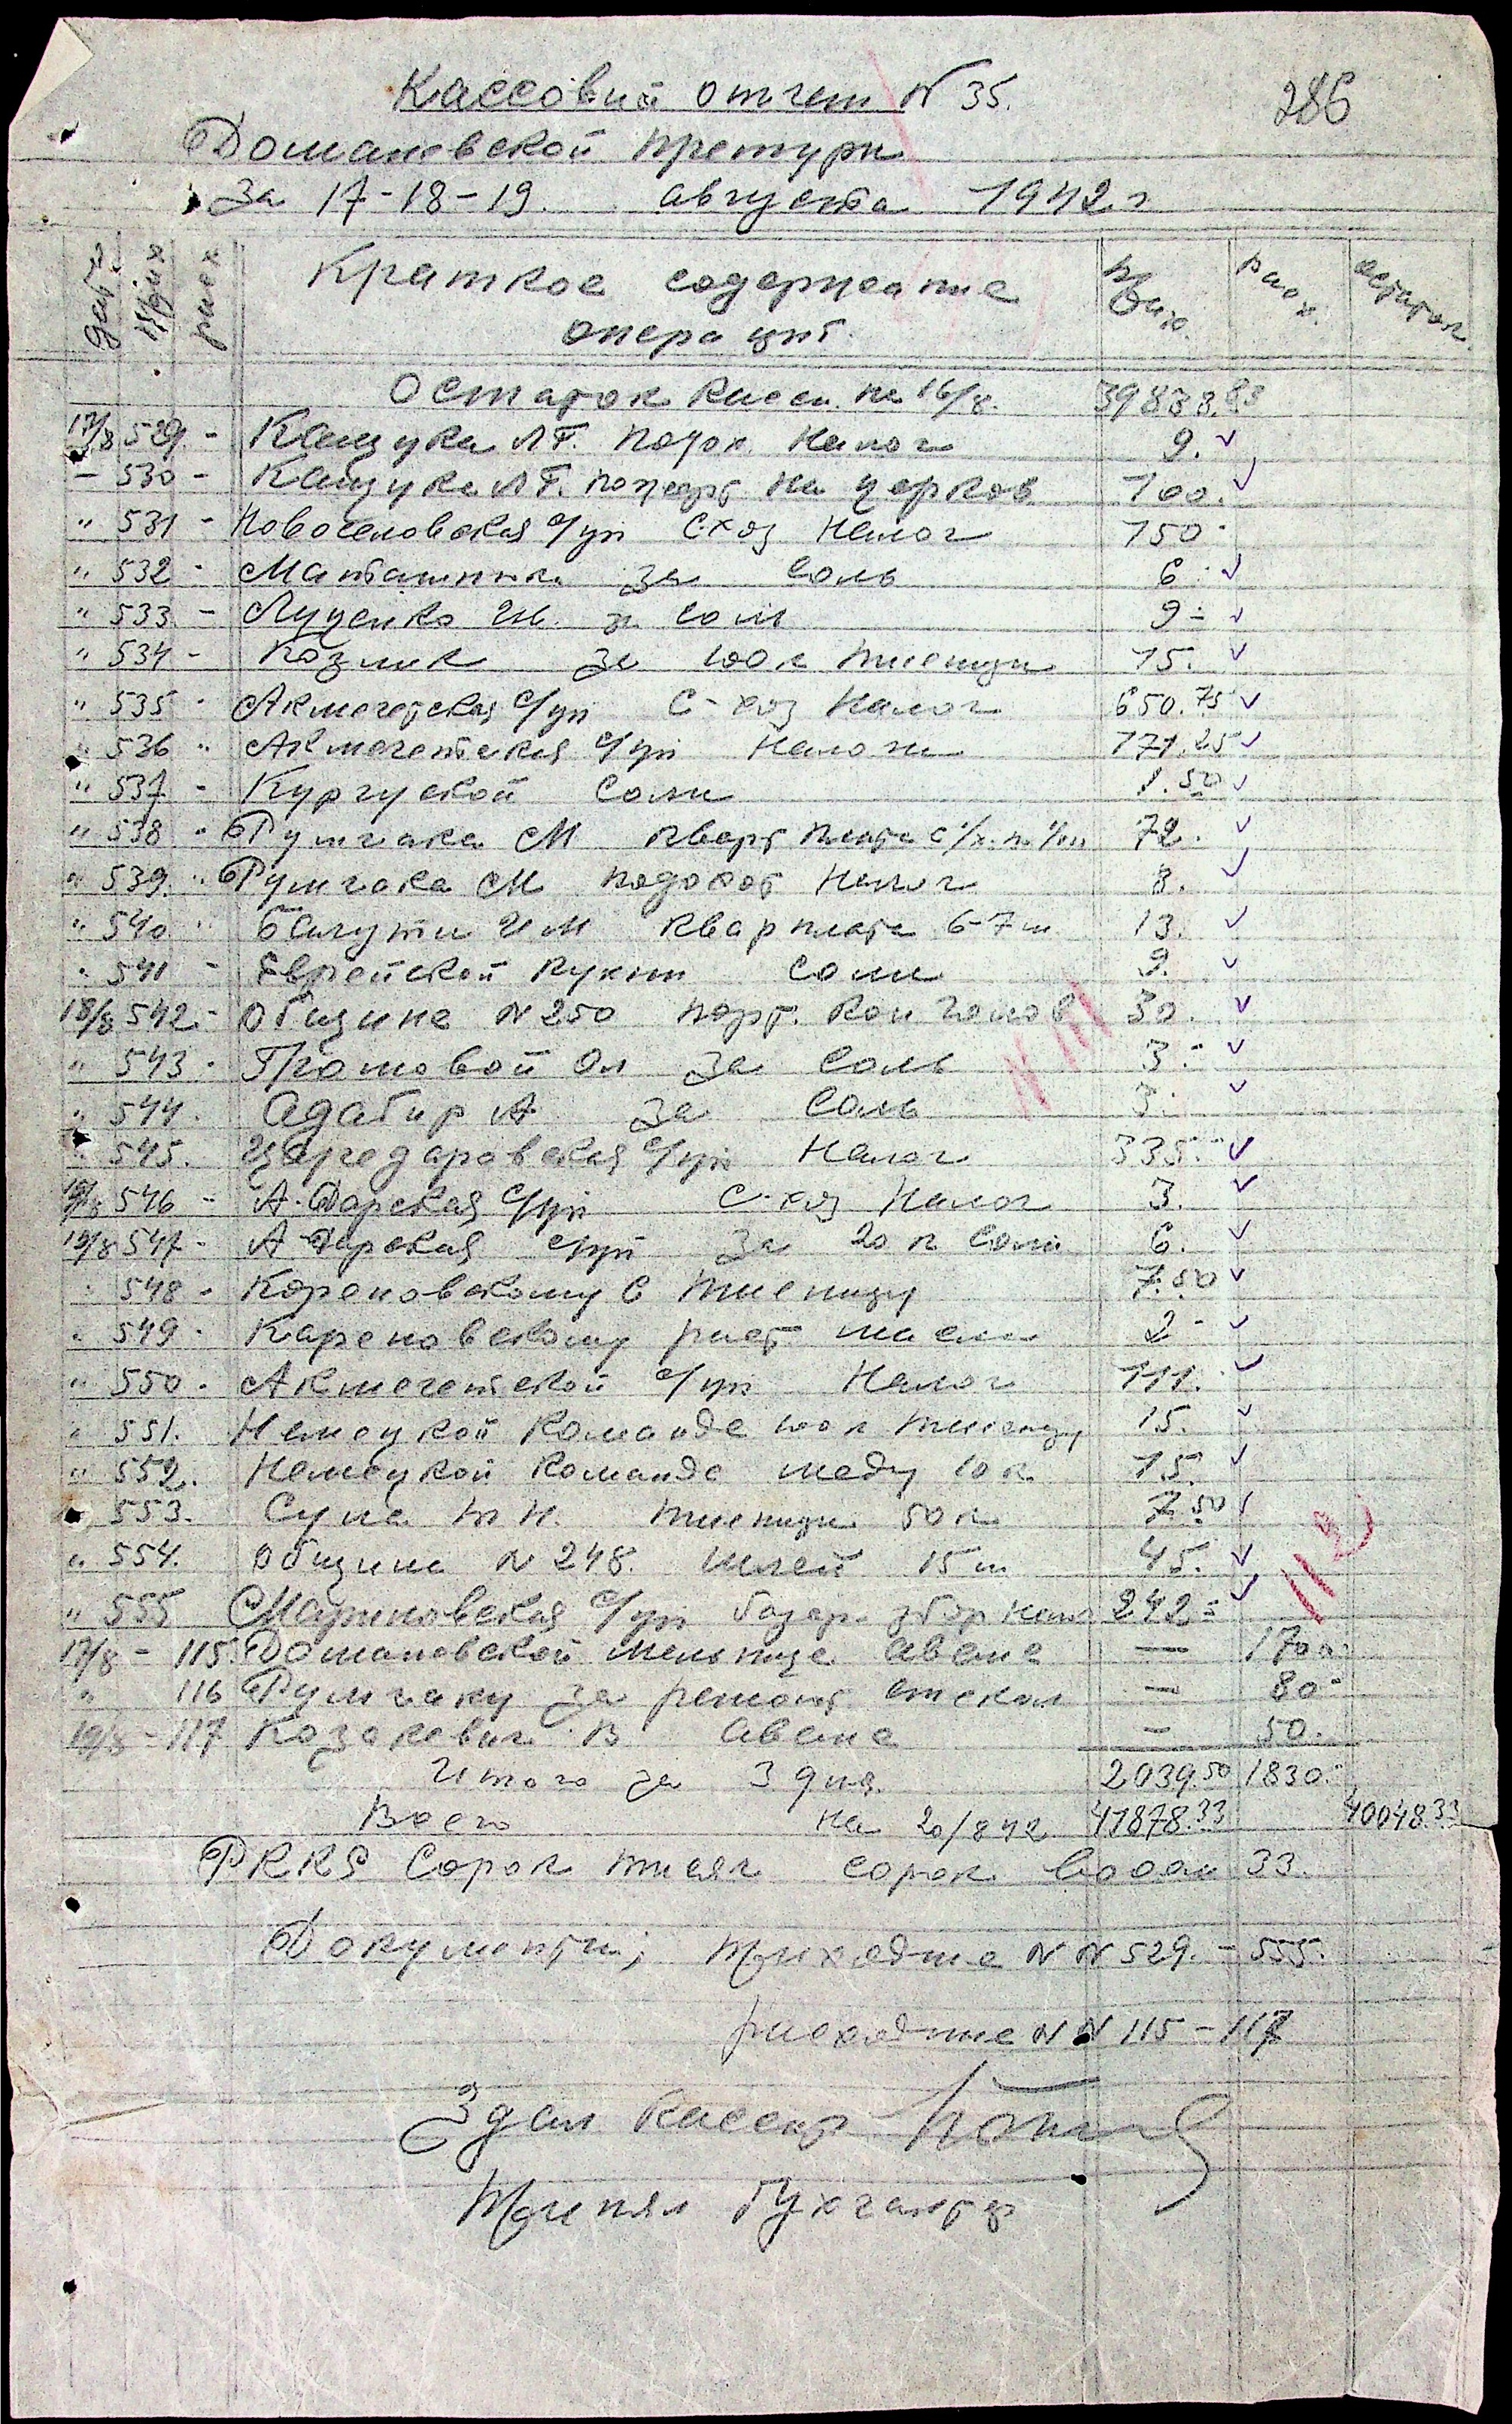 286
Кассовий отчет N 35.
Доманевской претури
За 17-18-19. августа 1942 г
дата прих расх Краткое содержание операций. прих. расх. остаток.
Остаток касси на 16/8. 39838.83
17/8 529. - Кащука Л Г. подох. налог 9. ✓
- 530 - Кащука Л Г. пожерт на церков 100. ✓
" 531 - Новоселовская с/уп С-хоз налог 150 -
" 532 - за соль 6 - ✓
" 533 - Луценко за соли 9 - ✓
" 534 - Козлик за 100 к пшеници 15. ✓
" 535 - Акмечетская с/уп С-хоз налог 650.75 ✓
" 536 " Акмечетская с/уп налоги 171.25 ✓
" 537 - Кургуской соли 1.50 ✓
" 538 - Румчака М кварт плата 72. ✓
" 539. " Румчака М подоход налог 8. ✓
" 540 " И М кварплата 6-7 м 13. ✓
" 541 - Еврейской кухни соли 9. ✓
18/8 542 - Общине N 250 30. ✓
" 543 - Громовой Ол за соль 3 - ✓
" 544. Адабир А за соль 3 - ✓
" 545. Царедаровская с/уп налог 335. - ✓
19/8 546 - А-Дарская с/уп С-хоз налог 3. ✓
19/8 547 - А-Дарская с/уп за 20 к соли 6. ✓
" 548 - Кореновскому С пшеницу 7.50 ✓
" 549 - Кареновскому раст масла 2 - ✓
" 550 - Акмечетской с/уп налог 111. - ✓
" 551. Немецкой команде 100 к пшеницу 15. ✓
" 552. Немецкой команде меду 10 к. 15. ✓
" 553. Супа Н. пшеници 50 к 7.50 ✓
" 554. Общине N 248. шлей 15 ш 45. ✓
" 555 Мариновская с/уп базар. збор 242 = ✓
17/8 - 115. Доманевской мельнице аванс — 1700
" 116 Румчаку за ремонт стекол — 80 -
19/8 - 117 Козакевич В аванс — 50.
Итого за 3 дня. 2039.50 1830. -
Всего на 20/8 42 41878.33 40048.33
РККS Сорок тисяч сорок восем 33.
Документи; приходние N N 529. - 555.
расходние N N 115 - 117
Здал кассир
Принял бухгалтер